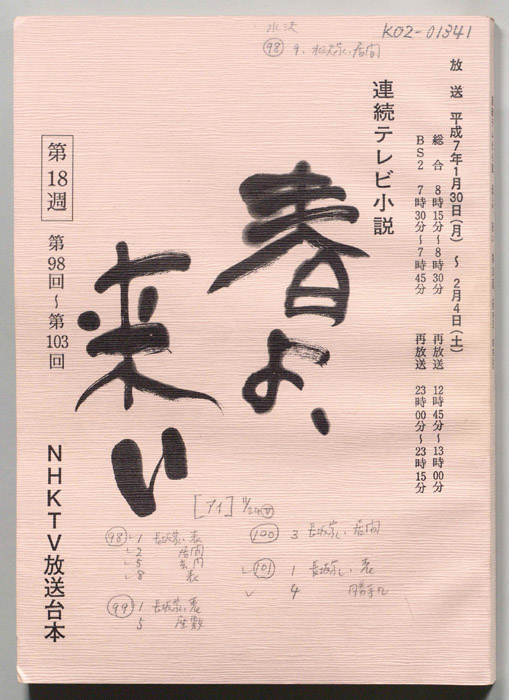 K02-01341
水決
98 9. 水決家い居間
放送 平成7年1月30日(月)~2月4日(土)
総合 8時15分~8時30分 再放送 12時45分~13時00分
BS2 7時30分~7時45分 再放送 23時00分~23時15分
連続テレビ小説
春よ、
来い
第18週 第98回~第103回
NHKTV放送台本
[アイ]
98 1 長坂家い表
2 居間
5 玄関
8 表
99 1 長坂家い表
5 座敷
100 3 長坂家い居間
101 1 長坂家い表
4 勝手口